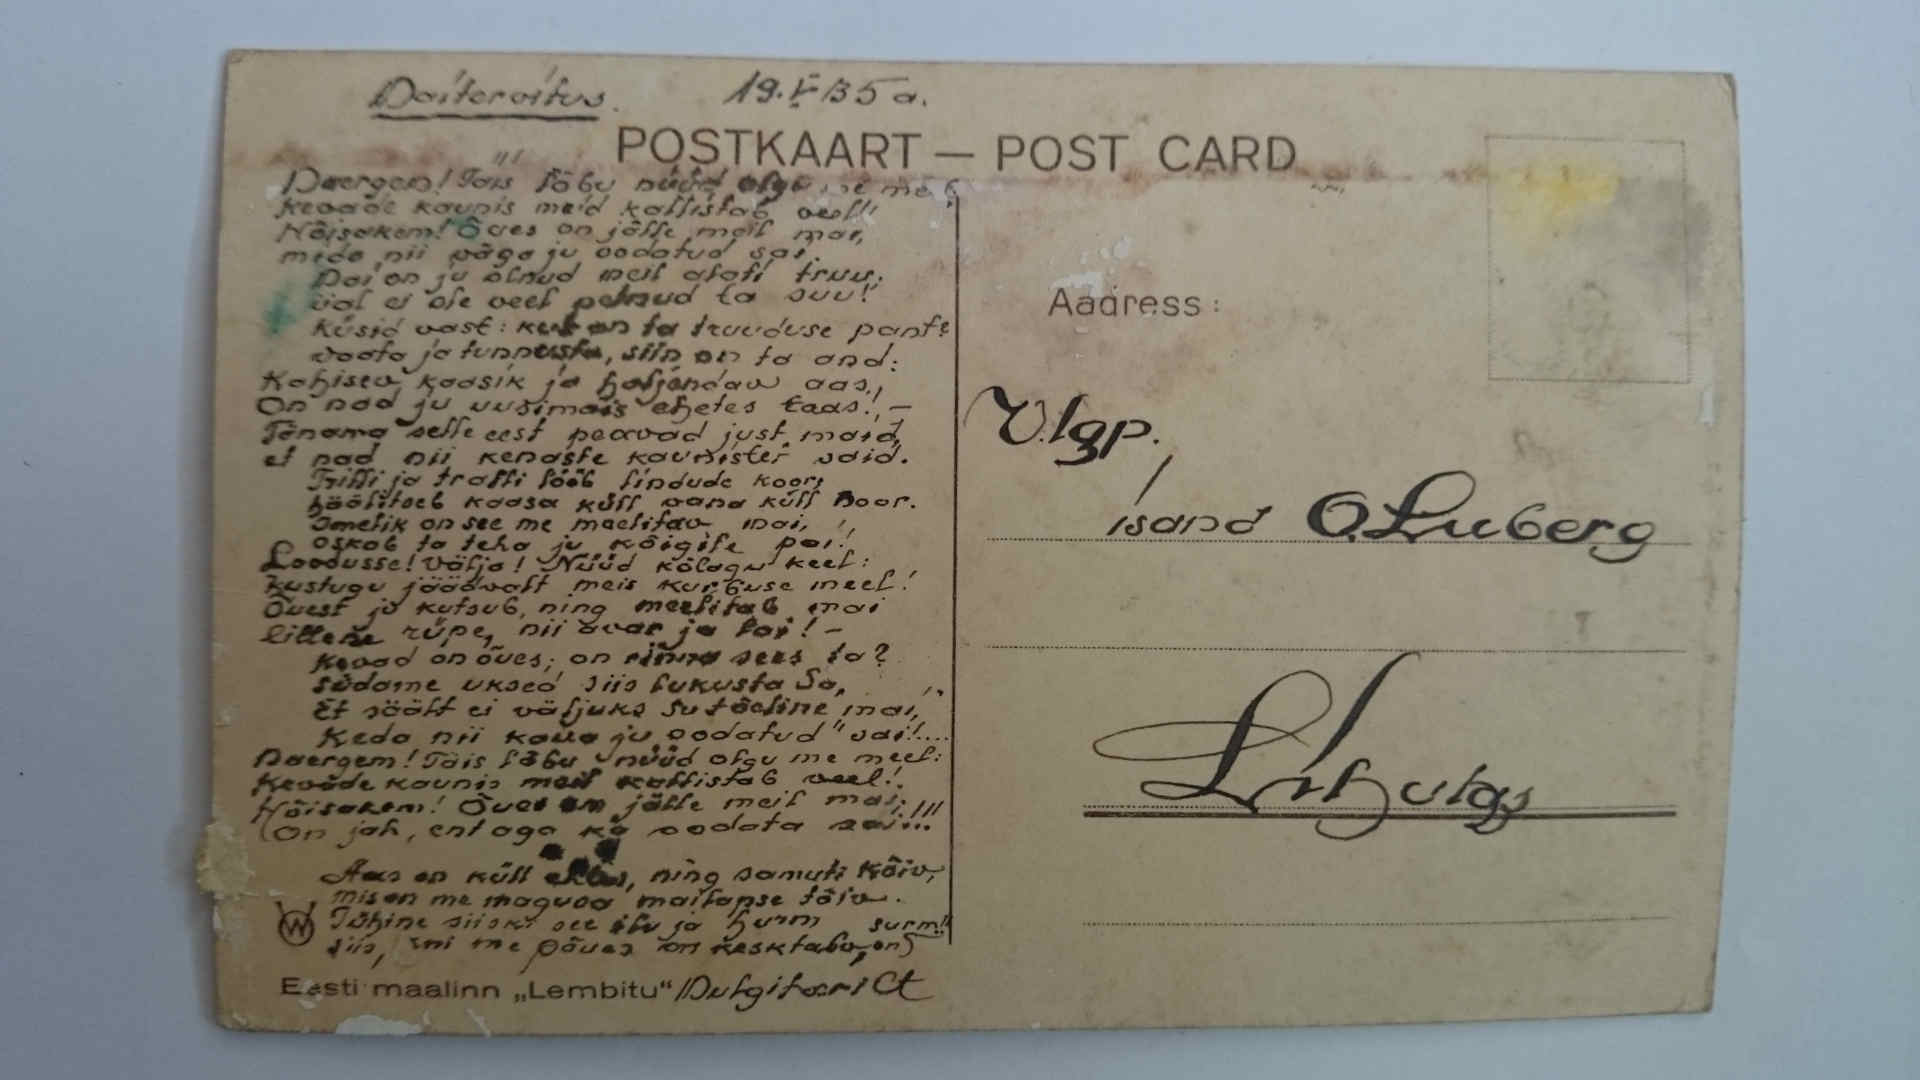 19. V 35 a.
POSTKAART — POST CARD
Naergem! Täis lõbu nüüd olgu me meel,
kevade kaunis meid kallistab veel!
Hõisakem! Õues on jälle meil mai,
meda nii väga ju oodatud sai.
on ju olnud meil alati truu,
ial ei ole veel petnud ta suu!
Küsid vast: kus on ta truuduse pant?
vaata ja tunnusta, siin on ta and:
Kohisev kaasik ja haljendav aas,
On nad ju uusimais ehetes taas!, —
Tänama selle eest peavad just maid,
et nad nii kenaste kaunister said.
Trilli ja tralli lööb lindude koor;
höölitseb kaasa küll vana küll noor.
Imelik on see me meelitav mai,
oskab ta teha ju kõigile pai!
Loodusse! Välja! Nüüd kõlagu keel:
kustugu jäädvalt meis kurbuse meel!
Õuest ju kutsub, ning meelitab mai
lillene rüpe, nii avar ja lai! —
Kevad on õues; on rinna sees ta?
südame uksed siis lukusta Sa,
Et säält ei väljuks Su tõeline mai,
Keda nii kaua ju oodatud sai!....
Naergem! Täis lõbu nüüd olgu me meel:
Kevade kaunis meid kallistab veel!
Hõisakem! Õues on jälle meil mai,!!!
(On jah, ent aga ka oodata sai!!!
Aas on küll ning samuti Kõiv,
mis on me maguva mailapse tõiv.
Tühine siiski see ilu ja hurm
siis, kui me põues on kesktalv, on surm!!
W
Eesti maalinn „Lembitu“
Aadress:
V.lgp.
isand O. Luberg